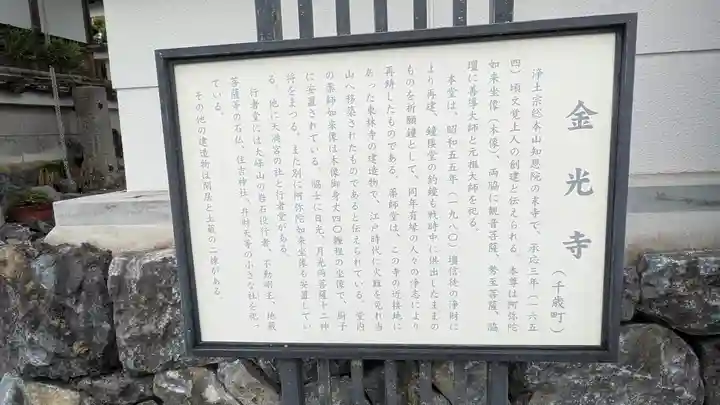 金光寺
（千歳町）
浄土宗総本山知恩院の末寺で、承応三年（一六五
四）頃文覚上人の創建と伝えられる。本尊は阿弥陀
如来坐像（木像）、両脇に観音菩薩、勢至菩薩、脇
壇に善導大師と元祖大師を祀る。
本堂は、昭和五五年（一九八〇）壇信徒の浄財に
より再建、鐘楼堂の釣鐘も戦時中に供出したままの
ものを祈願鐘として、同年有縁の人々の浄志により
再鋳したものである。薬師堂は、この寺の近接地に
あった東林寺の建造物で、江戸時代に火難を免れ当
山へ移築されたものであると伝えられている。堂内
の薬師如来像は木像御身丈四〇糎程の坐像で、厨子
に安置されている。脇士に日光、月光両菩薩十二神
将をまつる。また別に阿弥陀如来坐像も安置してい
る。他に天満宮の社と行者堂がある。
行者堂には大峰山の岩石役行者、不動明王、地蔵
菩薩等の石仏、住吉神社、弁財天等の小さな社と祀っ
ている。
その他の建造物は閑居と土蔵の二棟がある。